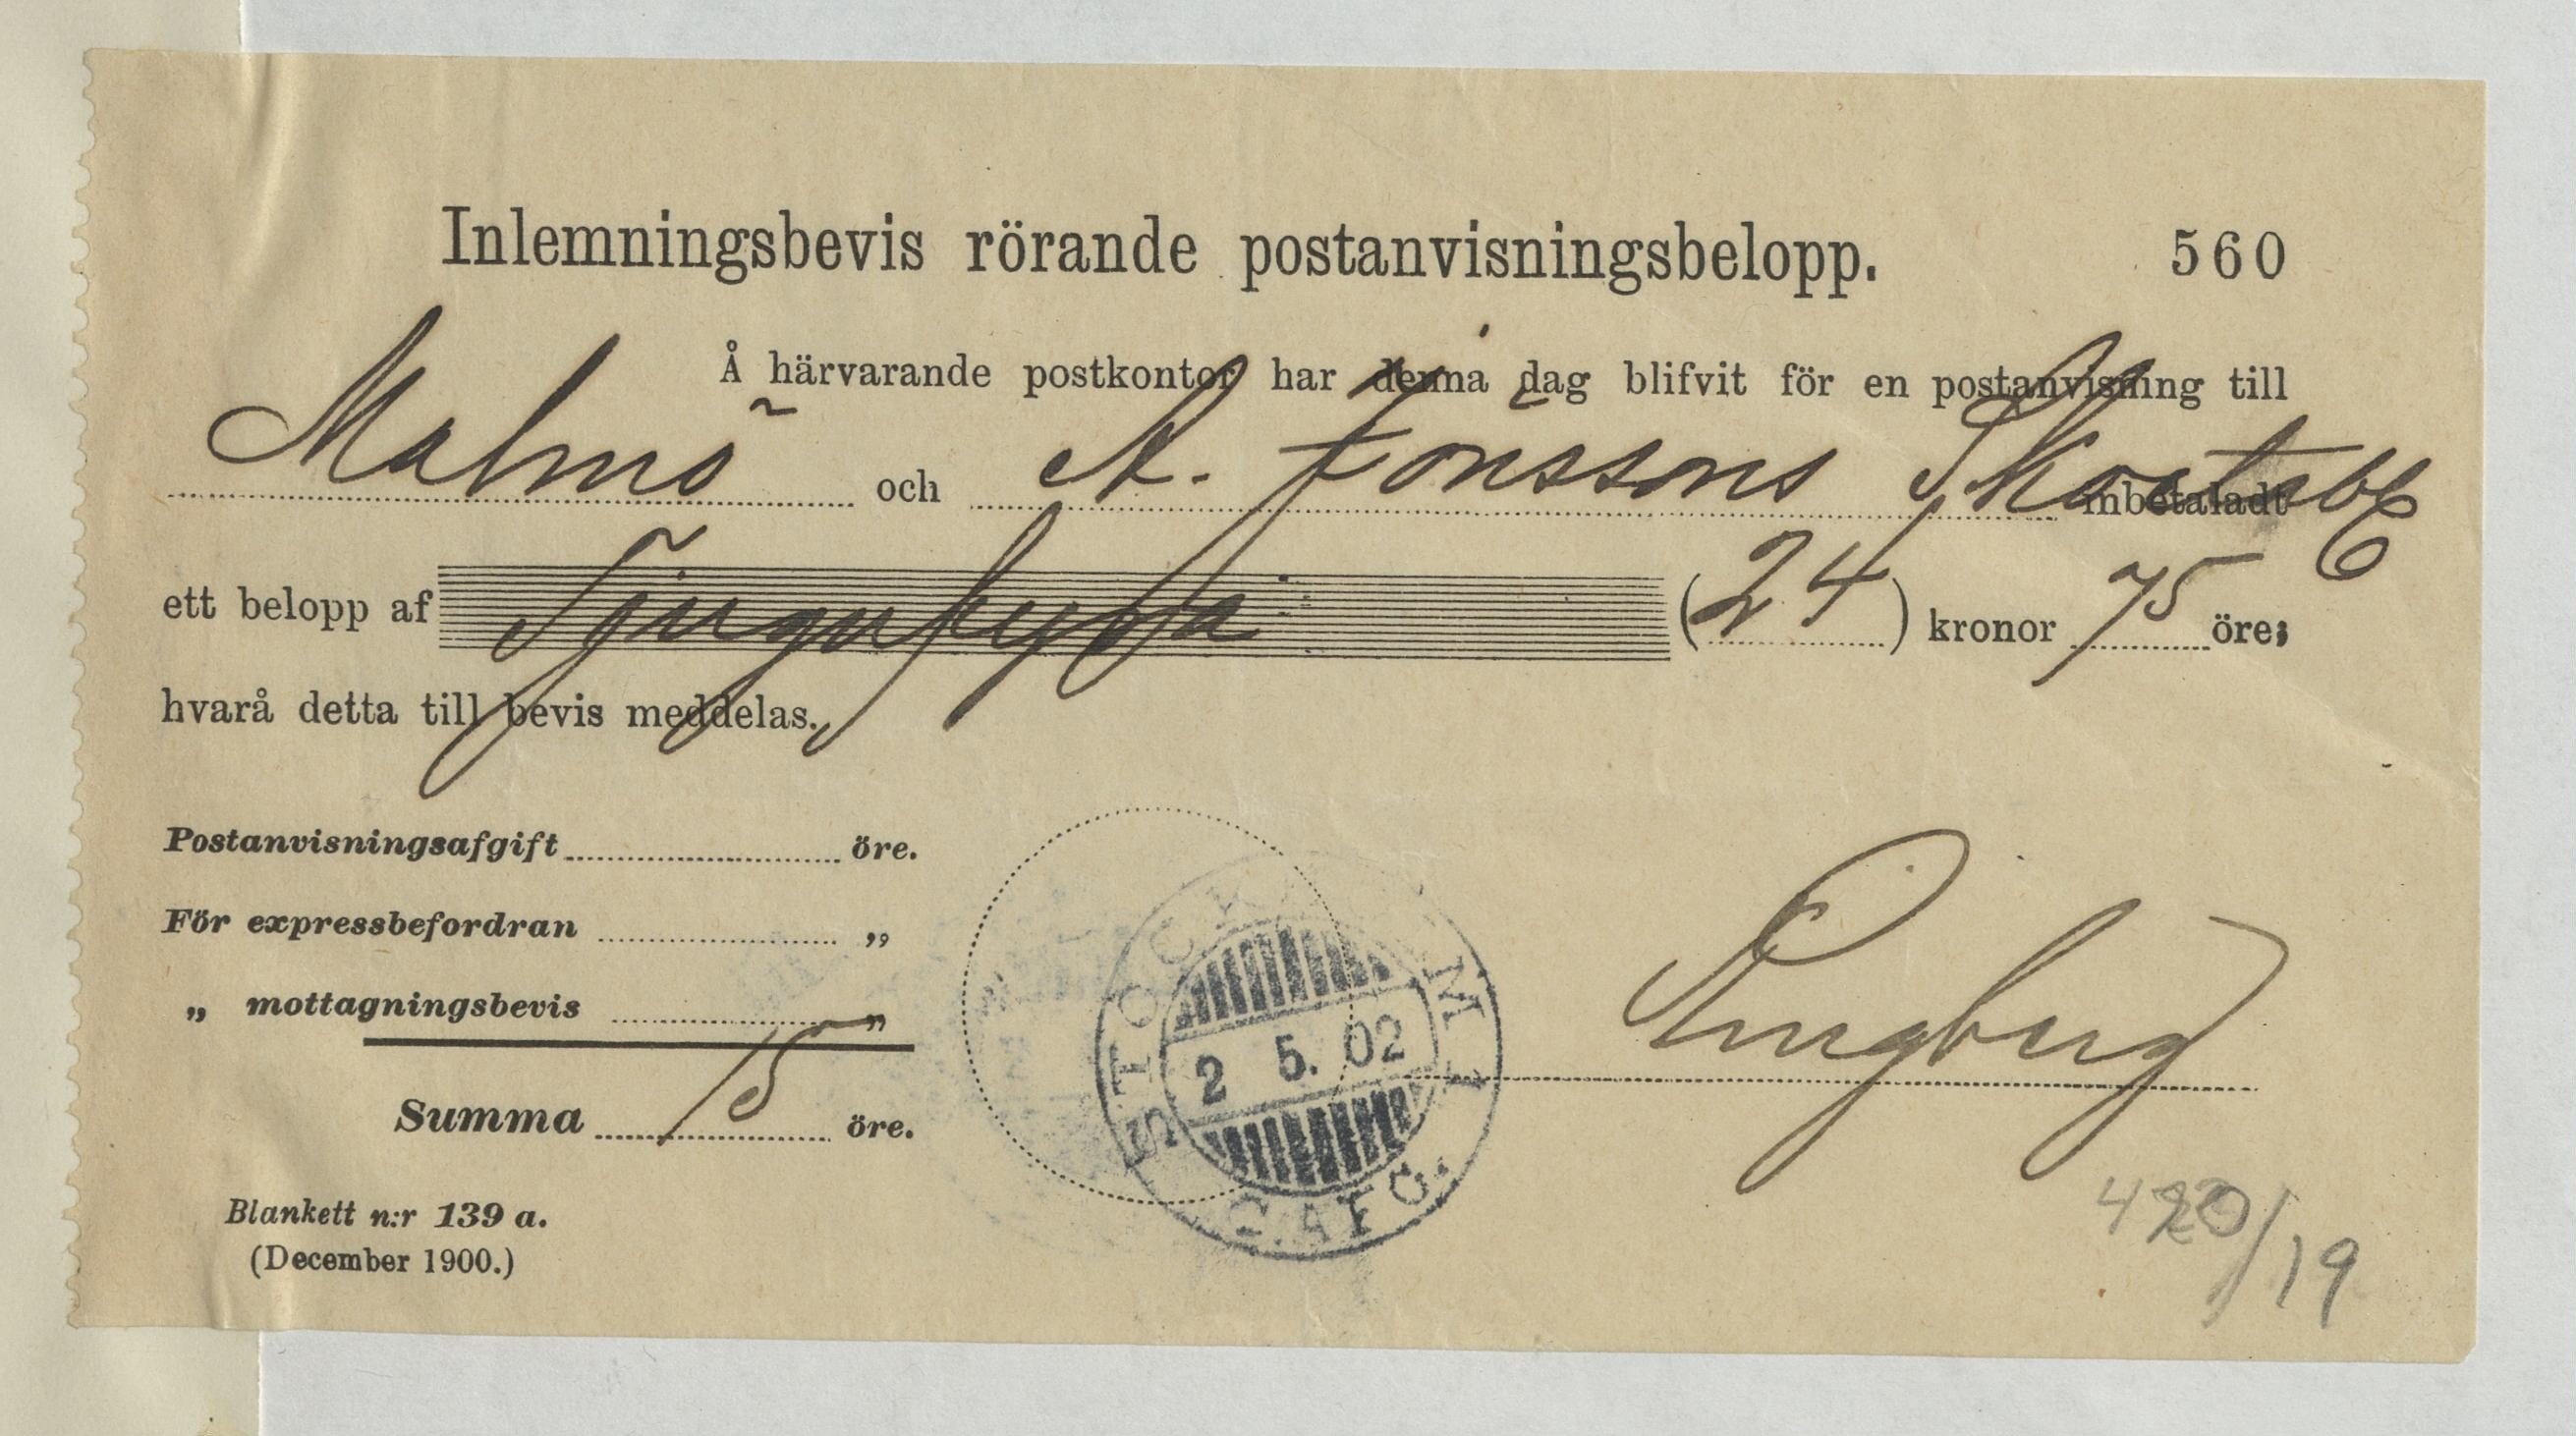 Inlemningsbevis rörande postanvisningsbelopp. 560
Å härvarande postkontor har denna dag blifvit för en postanvisning till
Malmö och A. Jönssons inbetaladt
ett belopp af Tjugufyra (24) kronor 75 öre;
hvarå detta till bevis meddelas.
Postanvisningsafgift öre.
För expressbefordran „
„ mottagningsbevis „
Summa 15 öre.
STOCKHOLM 1
2 5. 02
2. AFG.
Ljungberg
Blankett n:r 139 a.
(December 1900.)
420/19